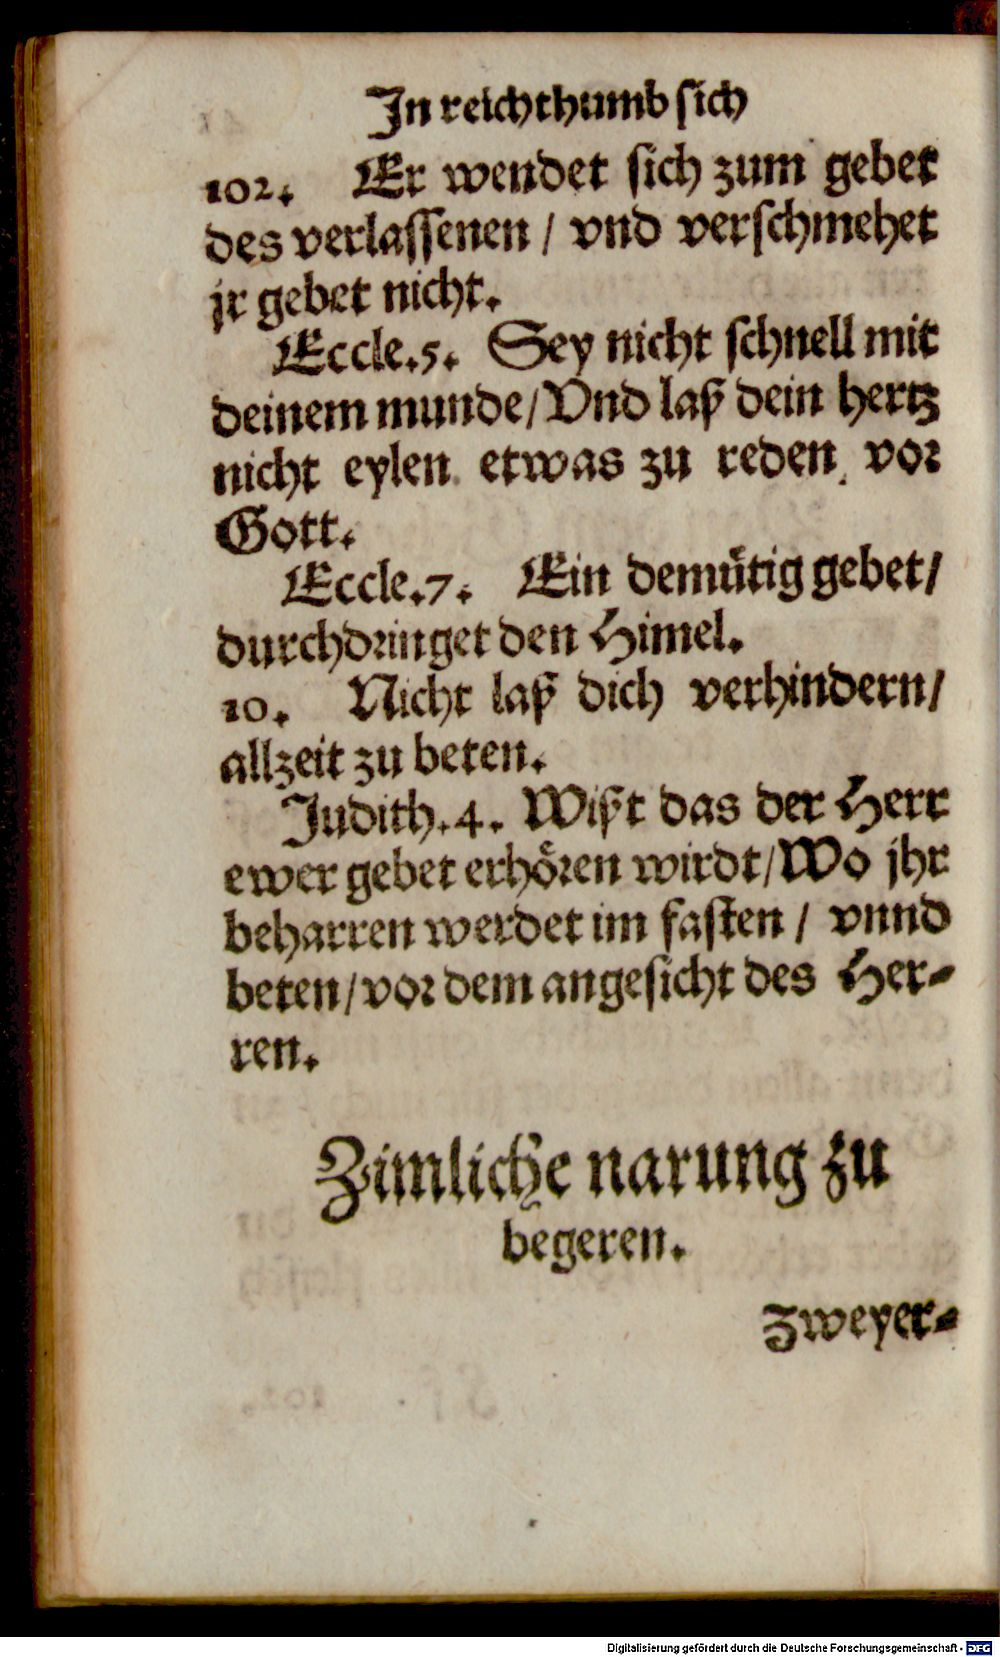 In reichthumb sich
102. Er wendet sich zum gebet
des verlassenen / vnd verschmehet
jr gebet nicht.
Eccle.5. Sey nicht schnell mit
deinem munde/Vnd laß dein hertz
nicht eylen etwas zu reden vor
Gott.
Eccle.7. Ein demütig gebet/
durchdringet den Himel.
10. Nicht laß dich verhindern/
allzeit zu beten.
Judith.4. Wißt das der Herr
ewer gebet erhören wirdt/Wo jhr
beharren werdet im fasten / vnnd
beten/vor dem angesicht des Her-
ren.
Zimliche narung zu
begeren.
Zweyer-
Digitalisierung gefördert durch die Deutsche Forschungsgemeinschaft - DFG